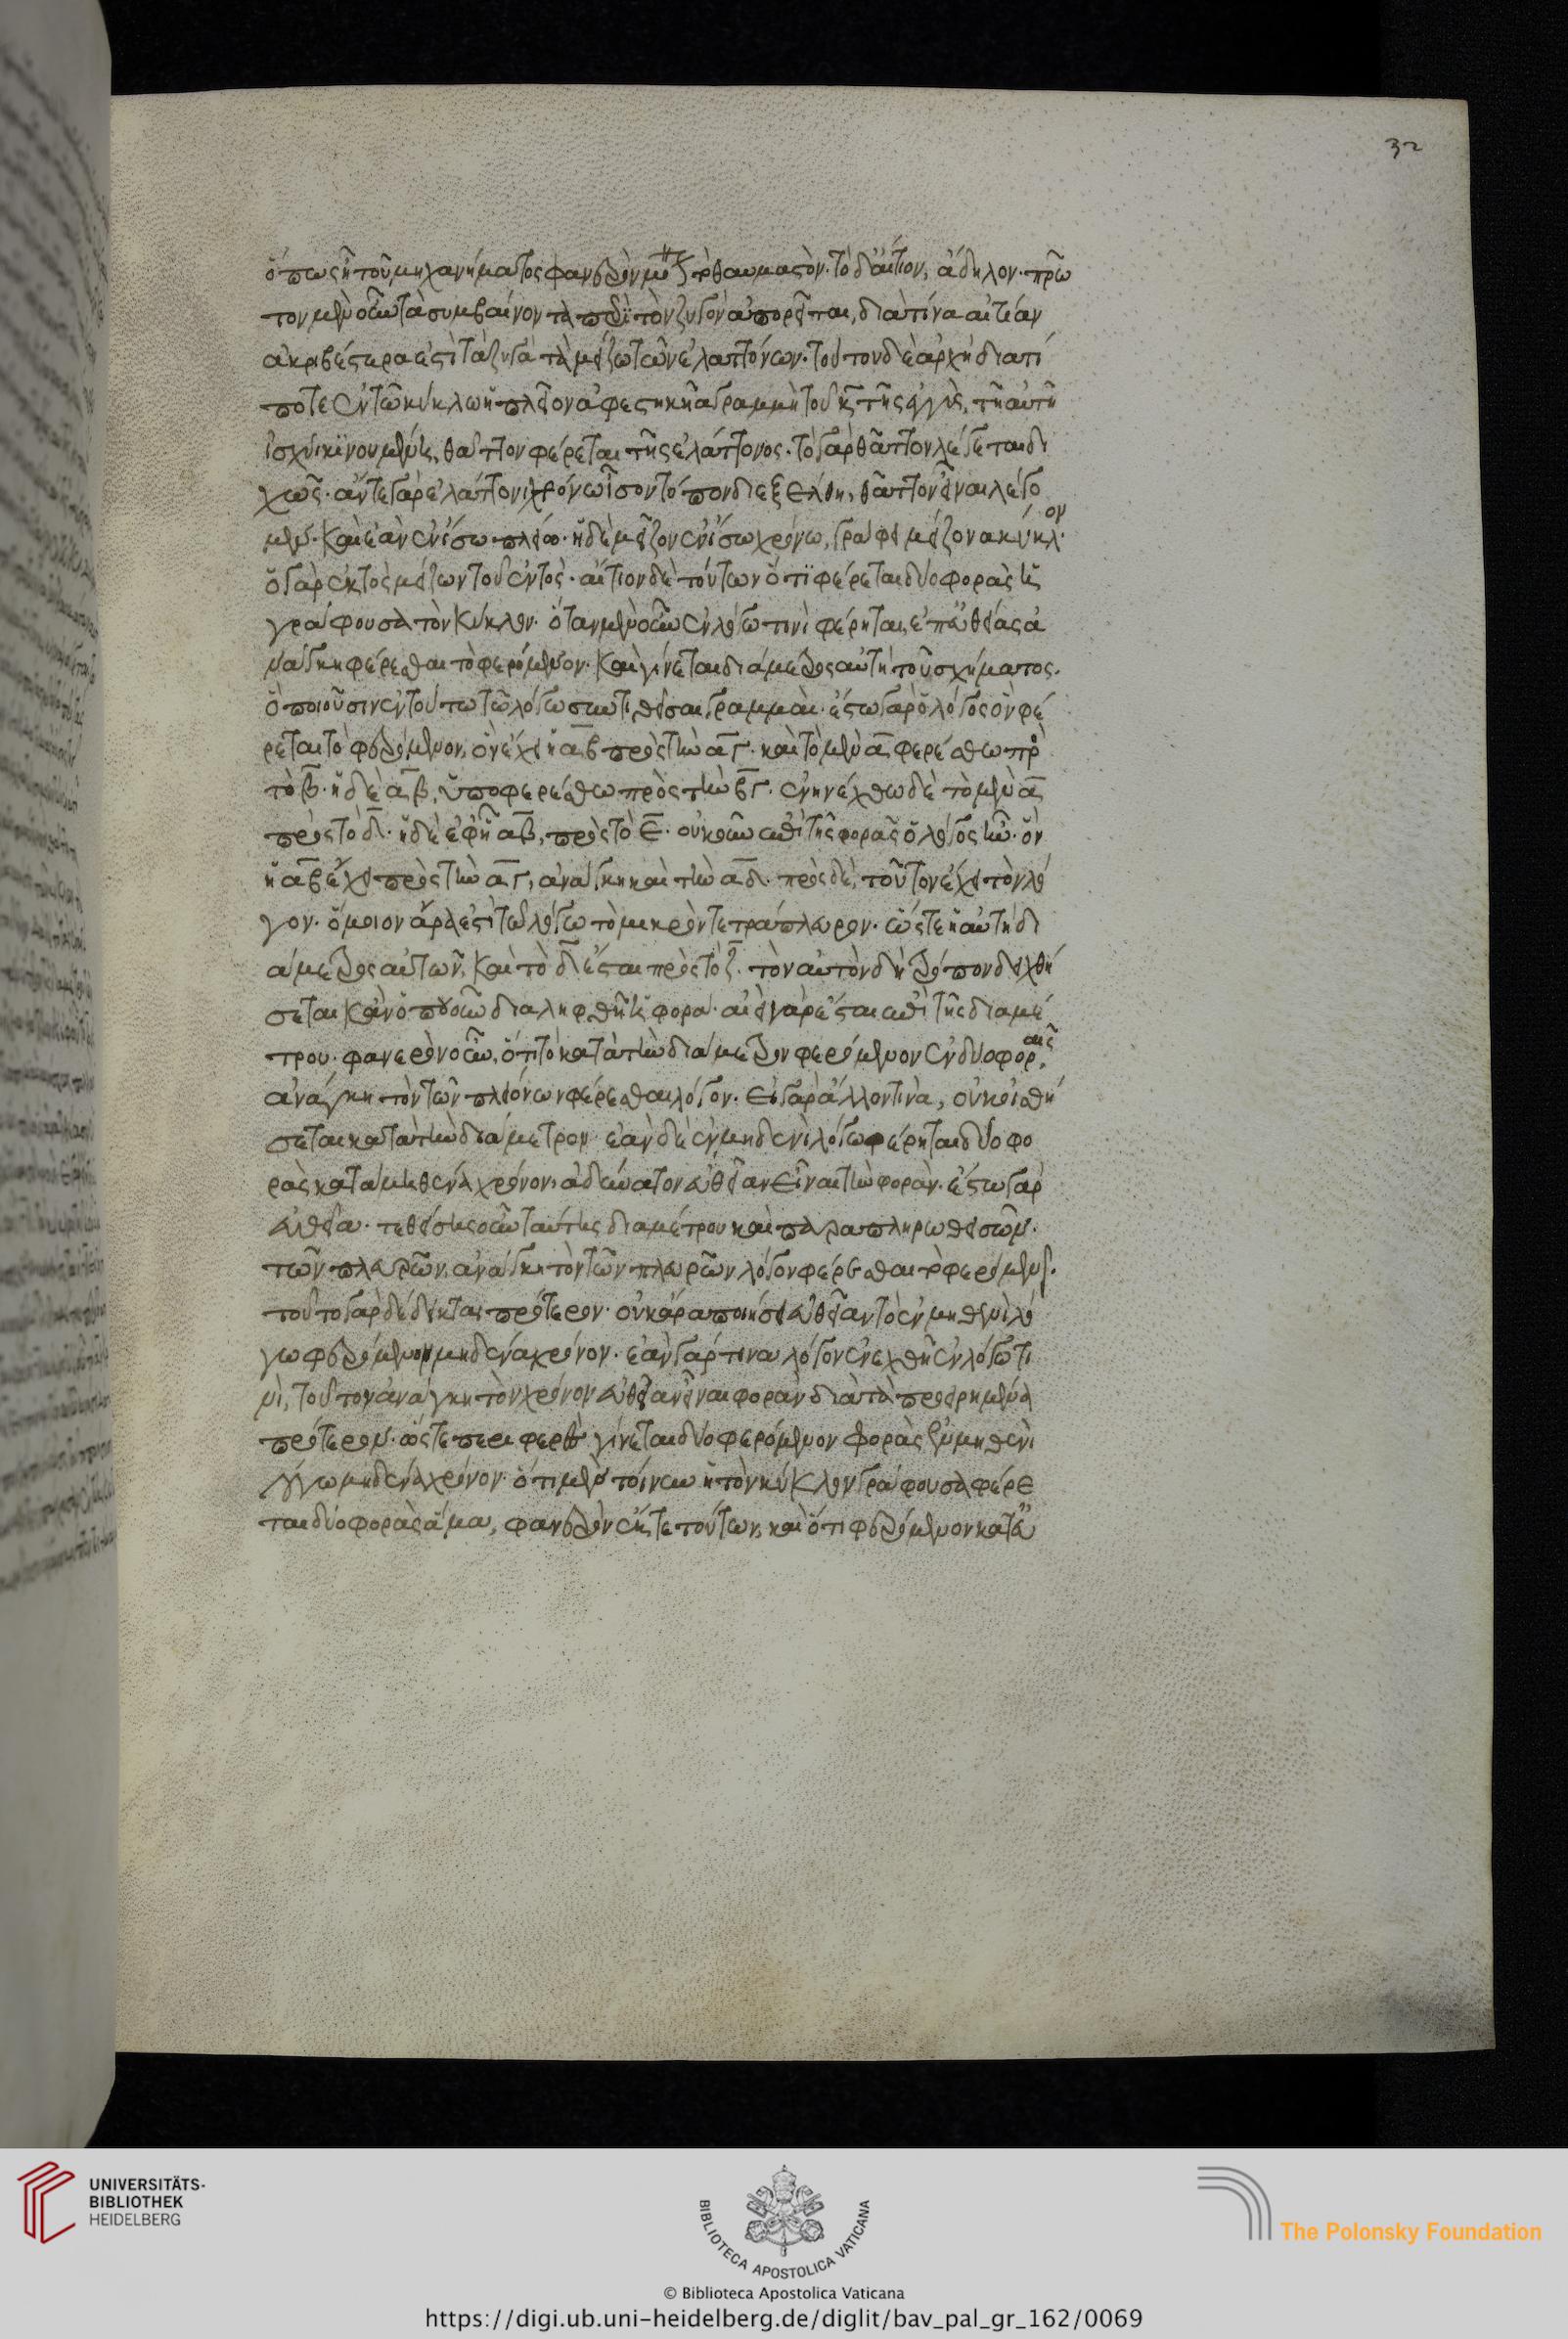 32
ὅπως ᾖ τοῦ μηχανήματος φανερὸν μόνον τὸ θαυμαστὸν. τὸ δ' αἴτιον, ἄδηλον. πρῶ
τον μὲν οὖν τὰ συμβαίνοντα περὶ τὸν ζυγὸν ἀπορεῖται, διὰ τίνα αἰτίαν
ἀκριβέστερα ἐστὶ τὰ ζυγὰ τὰ μείζω τῶν ἐλαττόνων. τούτου δὲ ἀρχὴ διατί
ποτε ἐν τῶ κύκλω ἡ πλεῖον ἀφεστηκυῖα γραμμὴ τοῦ κέντρου τῆς ἐγγὺς, τῆ αὐτῆ
ἰσχύι κινουμένης, θᾶττον φέρεται τῆς ἐλάττονος. τὸ γὰρ θᾶττον λέγεται δι
χῶς. ἄν τε γὰρ ἐλάττονι χρόνω ἴσον τόπον διεξέλθη, θᾶττον εἶναι λέγο
μεν. καὶ ἐὰν ἐν ἴσω πλείω. ἡ δὲ μεῖζον ἐν ἴσω χρόνω, γράφει μείζονα κύκλον.
ὁ γὰρ ἐκτὸς μείζων τοῦ ἐντός. αἴτιον δὲ τούτων ὅτι φέρεται δύο φορὰς ἡ
γράφουσα τὸν κύκλον. ὅταν μὲν οὖν ἐν λόγω τινὶ φέρηται, ἐπ' εὐθείας ἀ
νάγκη φέρεσθαι τὸ φερόμενον. καὶ γίνεται διάμετρος αὐτὴ τοῦ σχήματος.
ὃ ποιοῦσιν ἐν τούτω τῶ λόγω συντιθεῖσαι γραμμαὶ. ἔστω γὰρ ὁ λόγος ὃν φέ
ρεται τὸ φερόμενον, ὃν ἔχει ἡ αβ πρὸς τὴν αγ. καὶ τὸ μὲν α φερέσθω πρὸς
τὸ β. ἡ δὲ αβ, ὑποφερέσθω πρὸς τὴν βγ. ἐνηνέχθω δὲ τὸ μὲν α
πρὸς τὸ δ. ἡ δὲ ἐφ' ἧ αβ, πρὸς τὸ ε. οὐκοῦν ἐπὶ τῆς φορᾶς ὁ λόγος ἦν. ὃν
ἡ αβ ἔχει πρὸς τὴν αγ, ἀνάγκη καὶ τὴν αδ. πρὸς δὲ, τοῦτον ἔχει τὸν λό
γον. ὅμοιον ἄρα ἐστὶ τῶ λόγω τὸ μικρὸν τετράπλευρον. ὥστε ἡ αὐτὴ δι
άμετρος αὐτῶν, καὶ τὸ δ ἔσται πρὸς τὸ ζ. τὸν αὐτὸν δὴ τρόπον δειχθή
σεται κἂν ὁπουοῦν διαληφθῆ ἡ φορά. αἰεὶ γὰρ ἔσται ἐπὶ τῆς διαμέ
τρου. φανερὸν οὖν, ὅτι τὸ κατὰ τὴν διάμετρον φερόμενον ἐν δύο φοραῖς,
ἀνάγκη τὸν τῶν πλευρῶν φέρεσθαι λόγον. εἰ γὰρ ἄλλον τινὰ, οὐκ οἰσθή
σεται κατὰ τὴν διάμετρον. ἐὰν δὲ ἐν μηδενὶ λόγω φέρηται δύο φο
ρὰς κατὰ μηθένα χρόνον, ἀδύνατον εὐθεῖαν εἶναι τὴν φορὰν. ἔστω γὰρ
εὐθεῖα. τεθείσης οὖν ταύτης διαμέτρου καὶ παραπληρωθεισῶν
τῶν πλευρῶν, ἀνάγκη τὸν τῶν πλευρῶν λόγον φέρεσθαι τὸ φερόμενον.
τοῦτο γὰρ δέδεικται πρότερον. οὐκ ἄρα ποιήσει εὐθεῖαν τὸ ἐν μηθενὶ λό
γω φερόμενον μηδένα χρόνον. ἐὰν γάρ τινα λόγον ἐνεχθῆ ἐν λόγω τι
νὶ, τοῦτον ἀνάγκη τὸν χρόνον εὐθεῖαν εἶναι φορὰν διὰ τὰ προειρημένα
πρότερον. ὥστε περιφερὲς γίνεται δύο φερόμενον φορὰς ἐν μηθενὶ
λόγω μηδένα χρόνον. ὅτι μὲν τοίνυν ἡ τὸν κύκλον γράφουσα φέρε
ται δύο φορὰς ἅμα, φανερὸν ἔκ τε τούτων, καὶ ὅτι φερόμενον κατ' εὐ
UNIVERSITÄTS-
BIBLIOTHEK
HEIDELBERG
BIBLIOTECA APOSTOLICA VATICANA
The Polonsky Foundation
© Biblioteca Apostolica Vaticana
https://digi.ub.uni-heidelberg.de/diglit/bav_pal_gr_162/0069